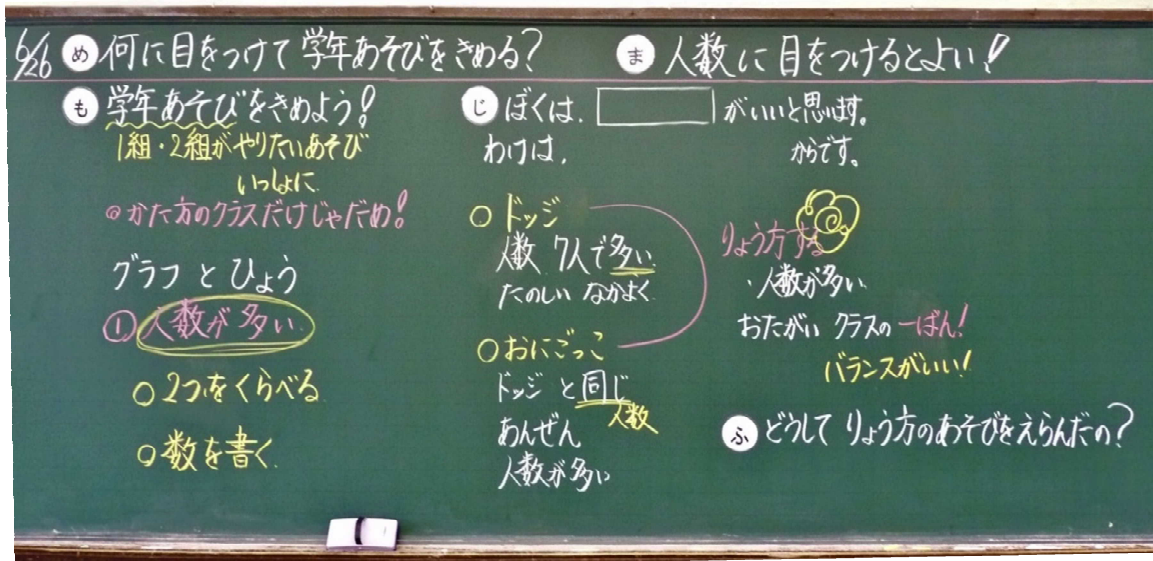 6/26 め 何に目をつけて学年あそびをきめる?
ま 人数に目をつけるとよい!
も 学年あそびをきめよう!
1組・2組がやりたいあそび
いっしょに
◎かた方のクラスだけじゃだめ!
グラフとひょう
① 人数が多い
○2つをくらべる
○数を書く
じ ぼくは、 がいいと思います。
わけは、 からです。
○ドッジ
人数 7人で多い
たのしい なかよく
○おにごっこ
ドッジと同じ
人数
あんぜん
人数が多い
りょう方する
・人数が多い
おたがい クラスの一ばん!
バランスがいい!
ふ どうしてりょう方のあそびをえらんだの?